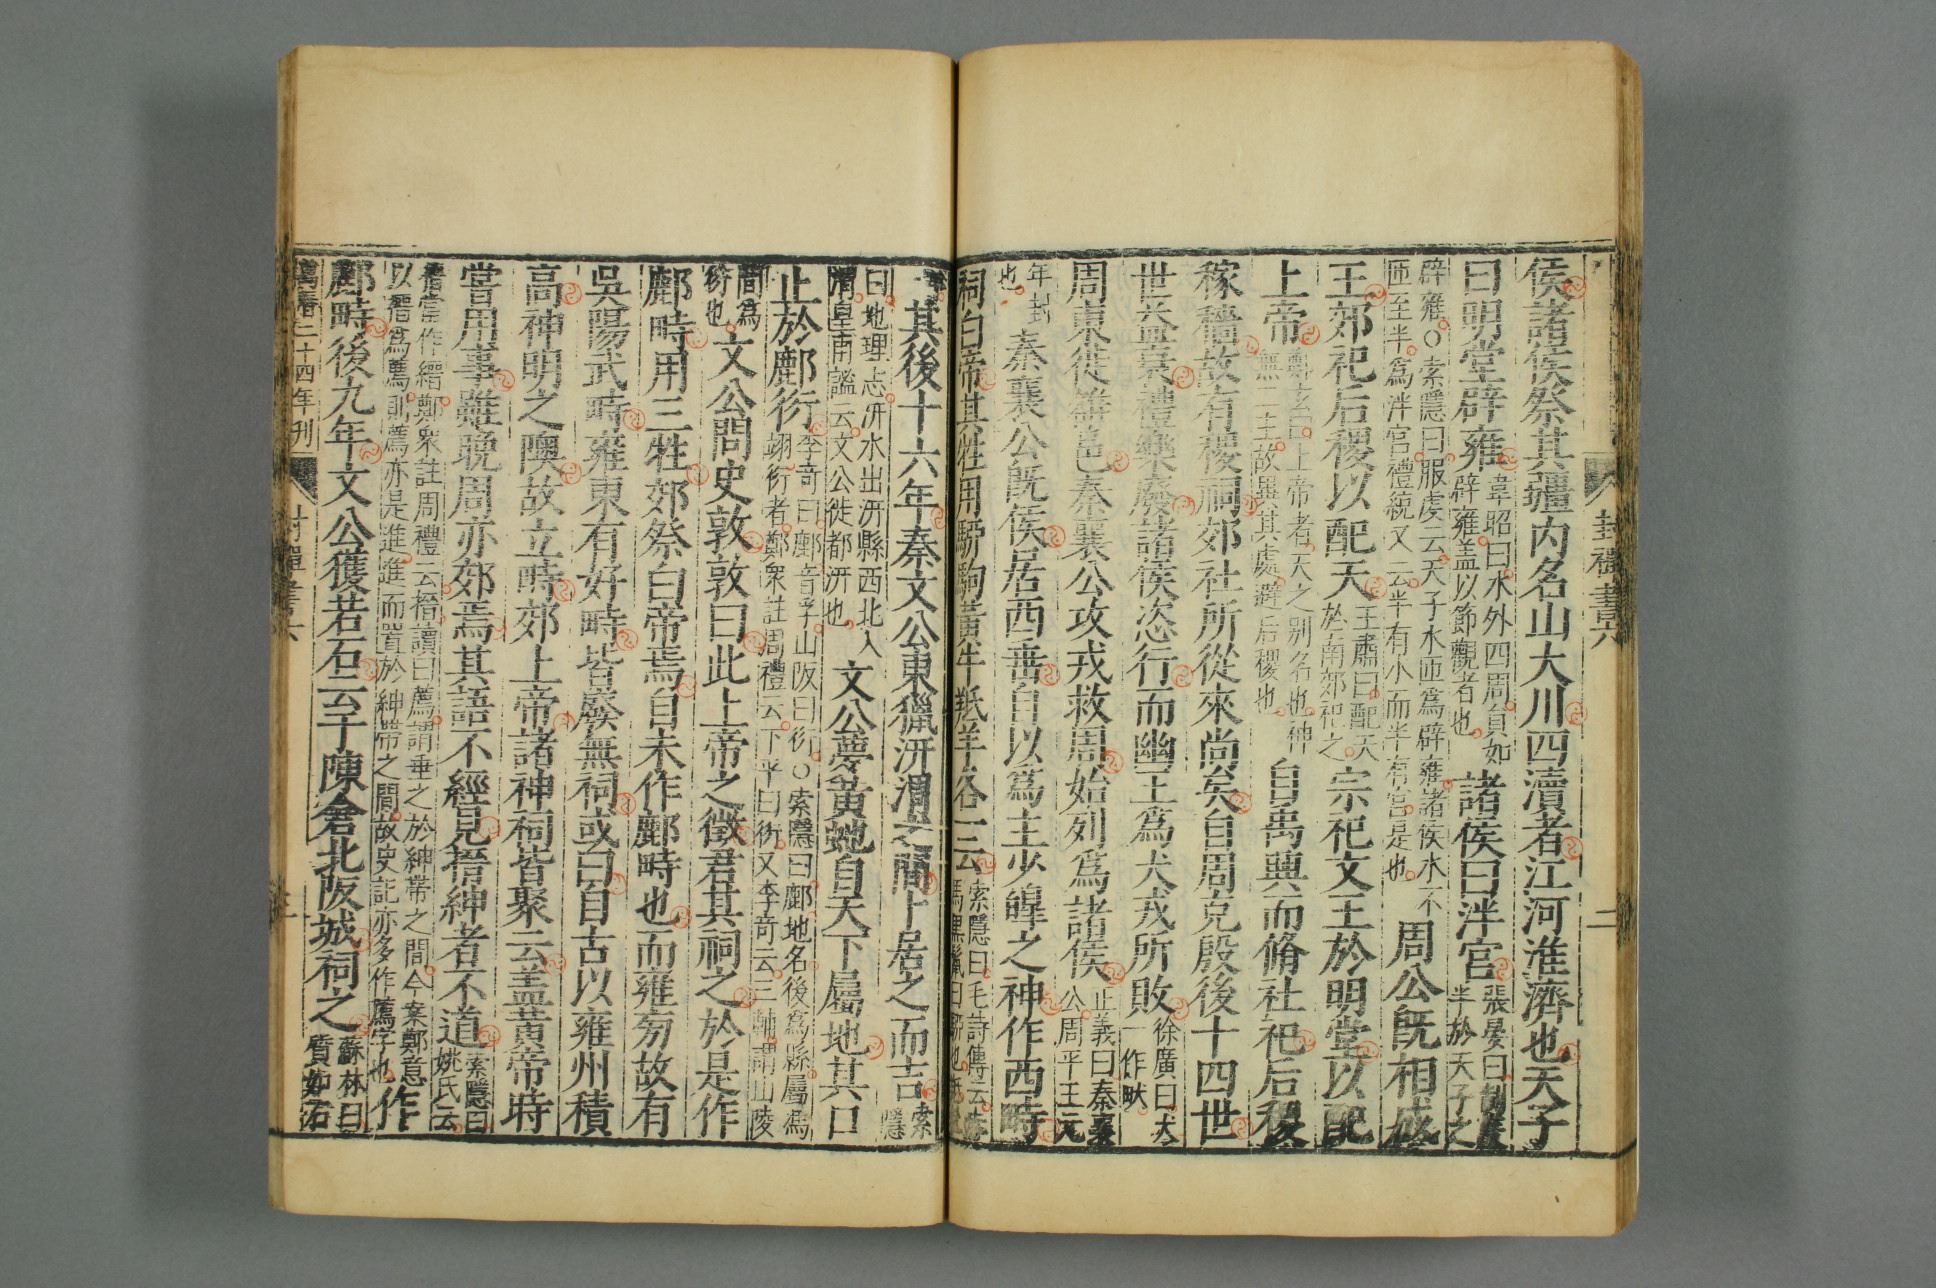 封禪書六
二
侯諸侯祭其疆内名山大川四瀆者江河淮濟也天子
曰明堂辟雍韋昭曰水外四周負如辟雍盖以節觀者也諸侯曰泮宮張晏曰制度半於天子之
辟雍○索隱曰服虔云天子水匝爲辟雍諸侯水不匝至半爲泮宮禮統又云半有水而半有宮是也周公旣相成
王郊祀后稷以配天王肅曰配天於南郊祀之宗祀文王於明堂以配
上帝鄭玄曰上帝者天之别名也神無二主故異其處避后稷也自禹興而脩社祀后稷
稼穡故有稷祠郊社所從來尚矣自周克殷後十四世
世益衰禮樂廢諸侯恣行而幽王爲犬戎所敗徐廣曰犬一作畎
周東徙雒邑秦襄公攻戎救周始列爲諸侯正義曰秦襄公周平王元
年封也秦襄公旣侯居西垂自以爲主少皥之神作西畤
祠白帝其牲用駵駒黃牛羝羊各一云索隱曰毛詩傳云赤馬黑鬣曰駵也
其後十六年秦文公東獵汧渭之間卜居之而吉索隱
曰地理志汧水出汧縣西北入渭皇甫謐云文公徙都汧也文公夢黃蛇自天下屬地其口
止於鄜衍李奇曰鄜音孚山阪曰衍○索隱曰鄜地名後爲縣屬馮翊衍者鄭衆註周禮云下平曰衍又李奇云三輔謂山陵
間爲衍也文公問史敦敦曰此上帝之徵君其祠之於是作
鄜畤用三牲郊祭白帝焉自未作鄜畤也而雍旁故有
吳陽武畤雍東有好畤皆廢無祠或曰自古以雍州積
高神明之隩故立畤郊上帝諸神祠皆聚云盖黃帝時
嘗用事雖晚周亦郊焉其語不經見搢紳者不道索隱曰姚氏云
搢當作縉鄭衆註周禮云搢讀曰薦謂垂之於紳帶之間今案鄭意以搢爲薦則薦亦是進進而置於紳帶之間故史記亦多作薦字也作
鄜畤後九年文公獲若石云于陳倉北阪城祠之蘇林曰質如石
萬曆二十四年刊
封禪書六